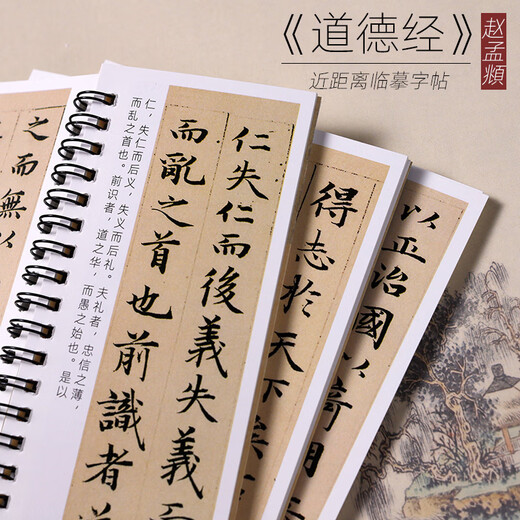 《道德经》
赵孟頫
近距离临摹字帖
仁，失仁而后义，失义而后礼。夫礼者，忠信之薄，
而乱之首也。前识者，道之华，而愚之始也。是以
仁失仁而後義失義
而亂之首也前識者道
得志於天下矣
以正治國以奇用
之而無以